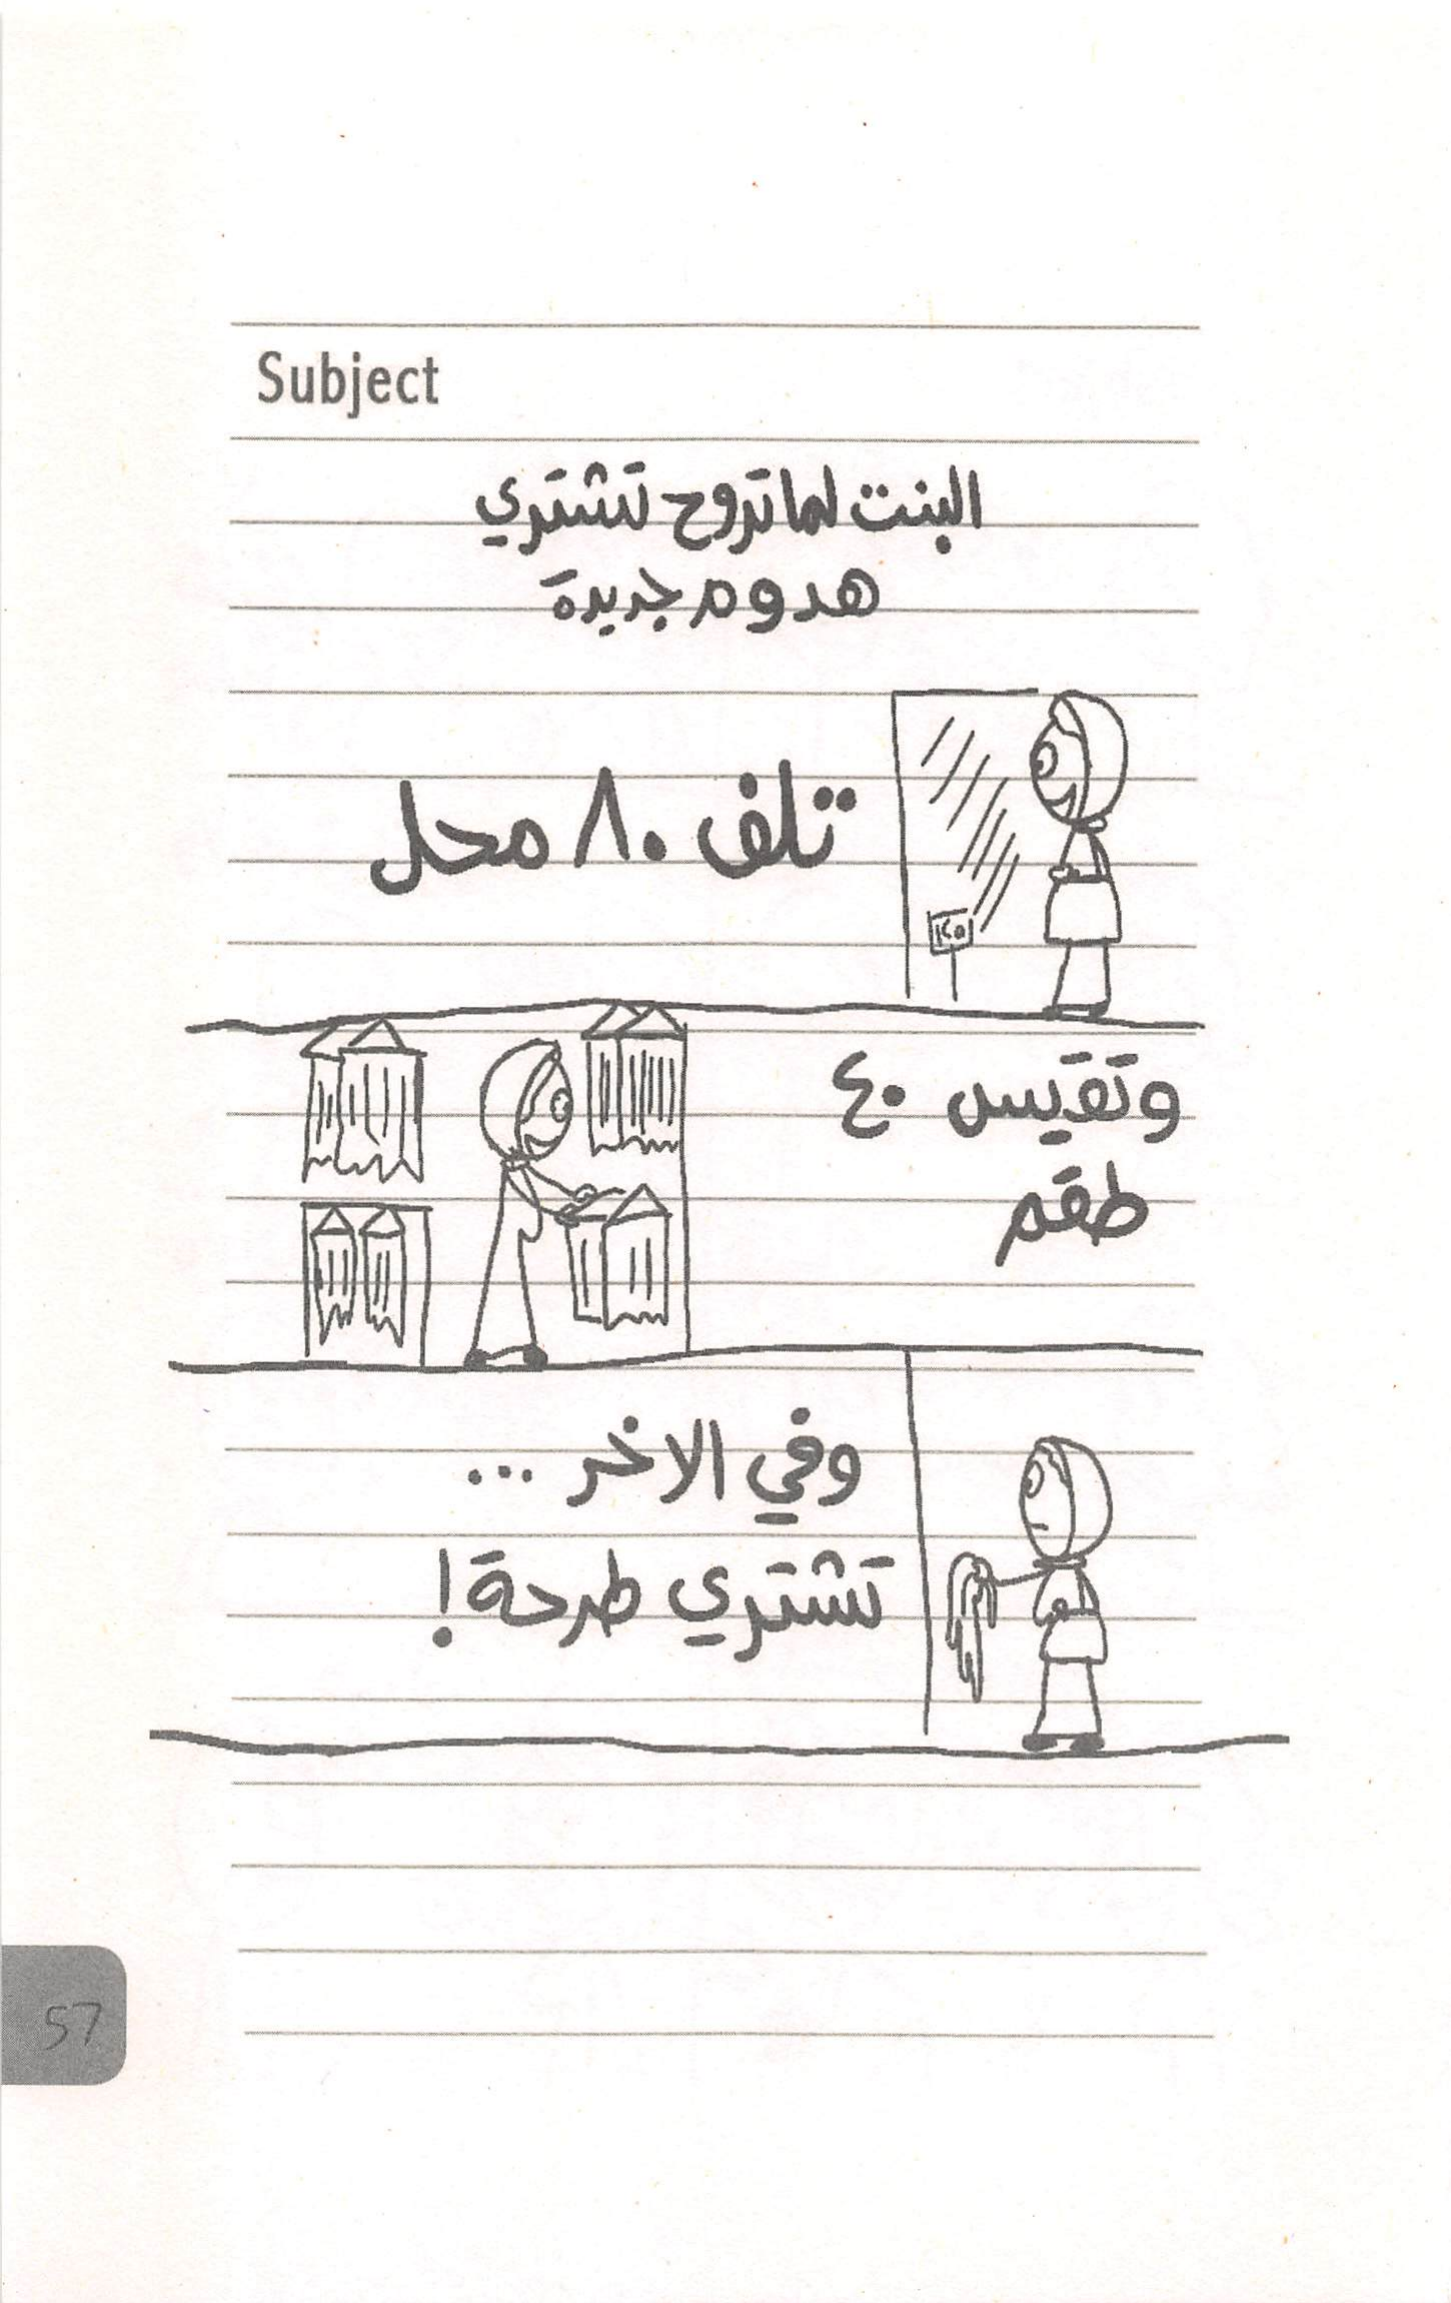 Subject
البنت لما تروح تشتري
هدوم جديدة
تلف ٨٠ محل
وتقيس ٤٠
طقم
وفي الاخر ...
تشتري طرحة!
57